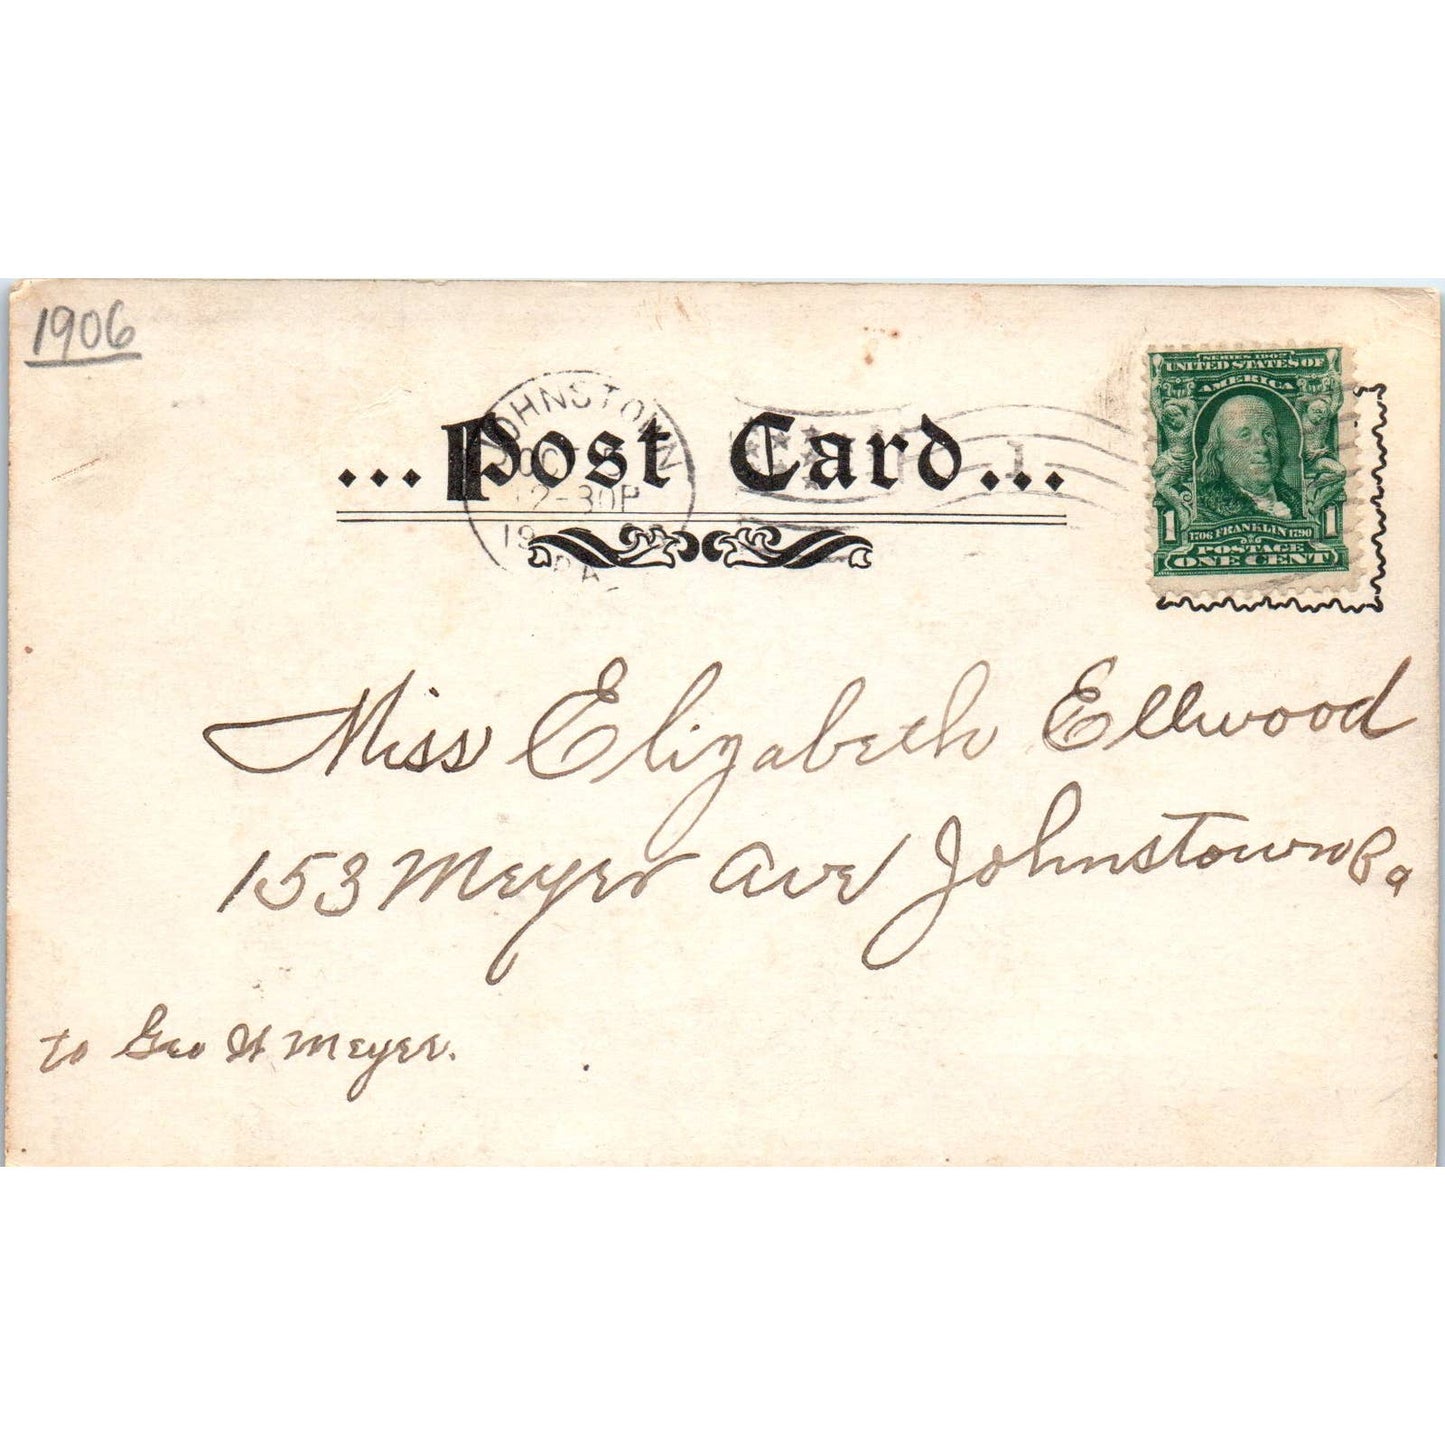 1906
...Post Card...
JOHNSTOWN
12-30P
19
PA
1
SERIES 1902
UNITED STATES OF
AMERICA
1 1
1706 FRANKLIN 1790
POSTAGE
ONE CENT
Miss Elizabeth Ellwood
153 Meyer Ave Johnstown Pa
to Geo H Meyer.